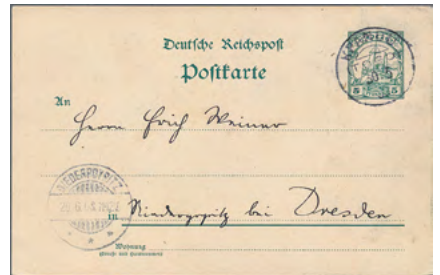 Deutsche Reichspost
Postkarte
5 5
An
Herrn Erich Weiner
NIEDERPOYRITZ
in Niederpoyritz bei Dresden
Wohnung
(Straße und Hausnummer)